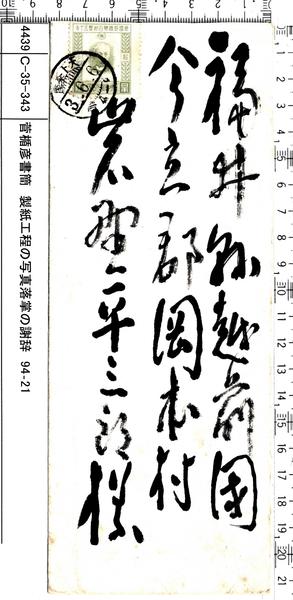 福井縣越前國
今立郡岡本村
岩野平三郎様
3.6.6
4439 C-35-343 菅楯彦書簡 製紙工程の写真落掌の謝辞 94-21